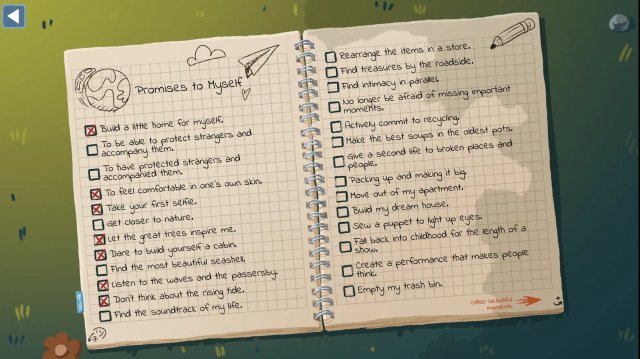 Promises to Myself
Build a little home for myself.
To be able to protect strangers and
accompany them.
To have protected strangers and
accompanied them.
To feel comfortable in one's own skin.
Take your first selfie.
Get closer to nature.
Let the great trees inspire me.
Dare to build yourself a cabin.
Find the most beautiful seashell.
Listen to the waves and the passersby.
Don't think about the rising tide.
Find the soundtrack of my life.
Rearrange the items in a store.
Find treasures by the roadside.
Find intimacy in parallel.
No longer be afraid of missing important
moments.
Actively commit to recycling.
Make the best soups in the oldest pots.
Give a second life to broken places and
people.
Packing up and making it big.
Move out of my apartment.
Build my dream house.
Sew a puppet to light up eyes.
Fall back into childhood for the length of a
show.
Create a performance that makes people
think.
Empty my trash bin.
Other beautiful
moments